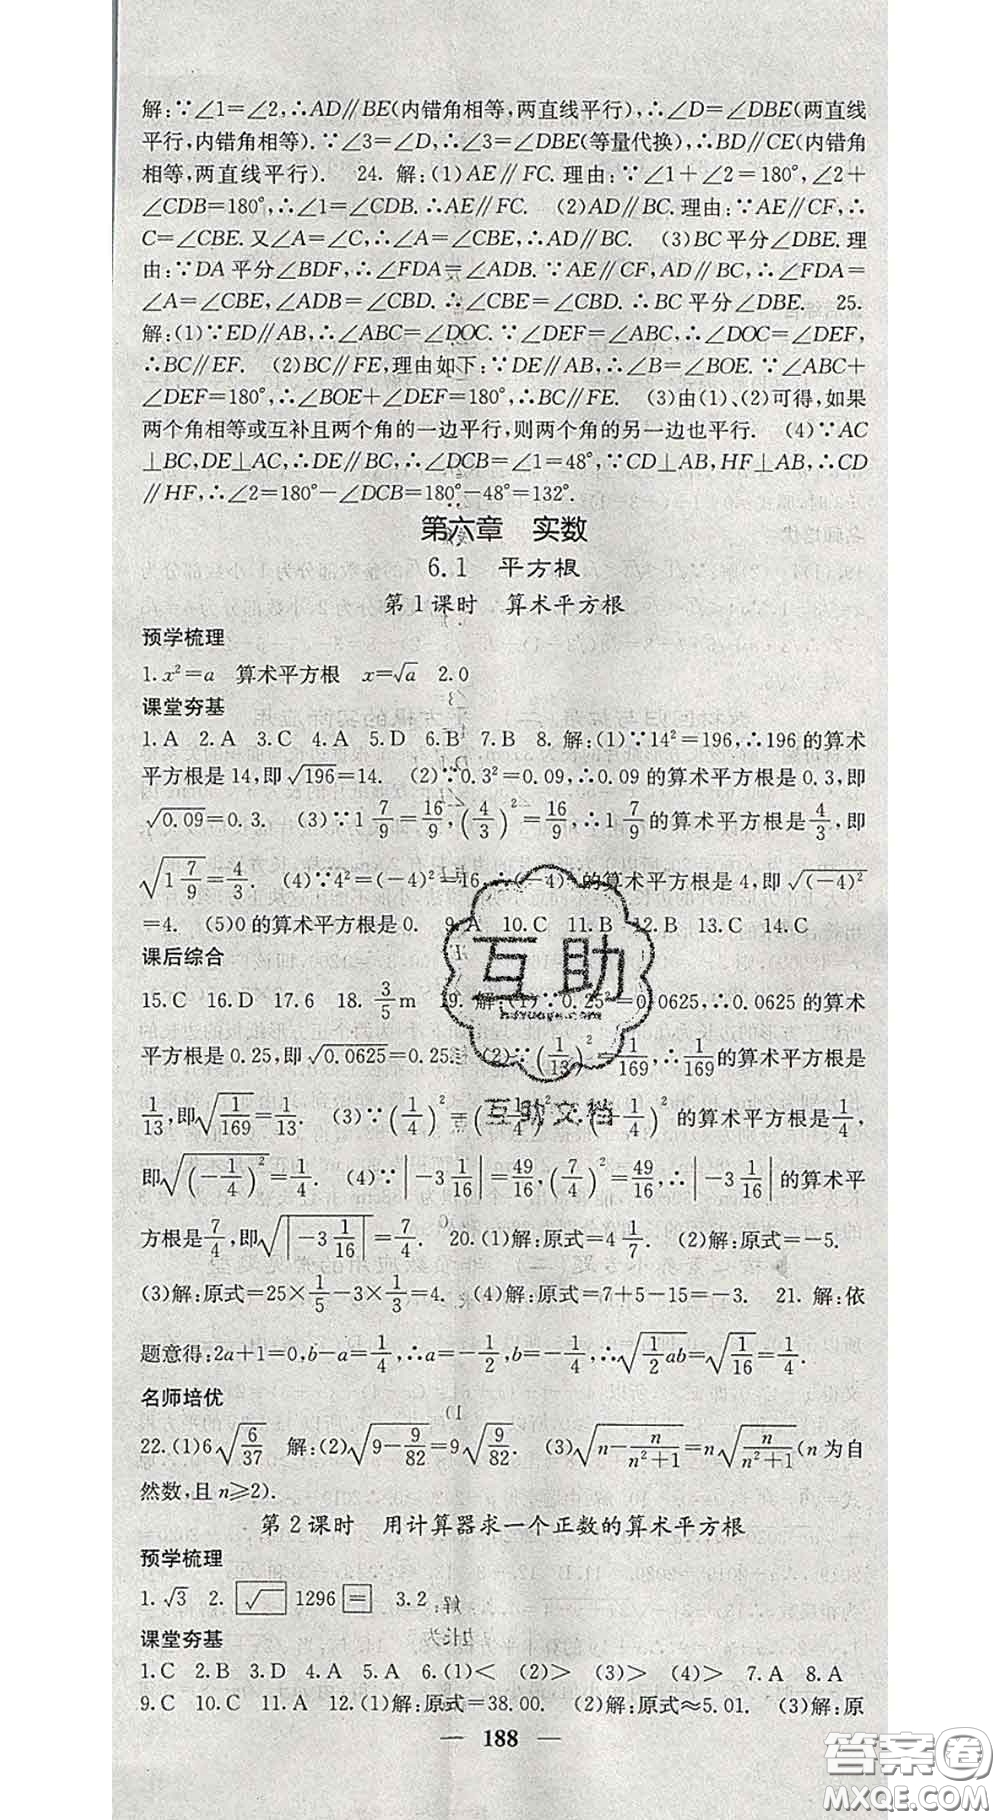 解:∵∠1=∠2,∴AD∥BE(内错角相等,两直线平行),∴∠D=∠DBE(两直线
平行,内错角相等).∵∠3=∠D,∴∠3=∠DBE(等量代换),∴BD∥CE(内错角
相等,两直线平行). 24. 解:(1)AE∥FC. 理由:∵∠1+∠2=180°,∠2+
∠CDB=180°,∴∠1=∠CDB.∴AE∥FC. (2)AD∥BC.理由:∵AE∥CF,∴
C=∠CBE. 又∠A=∠C,∴∠A=∠CBE,∴AD∥BC. (3)BC平分∠DBE. 理
由:∵DA平分∠BDF,∴∠FDA=∠ADB. ∵AE∥CF,AD∥BC,∴∠FDA=
∠A=∠CBE,∠ADB=∠CBD. ∴∠CBE=∠CBD. ∴BC平分∠DBE. 25.
解:(1)∵ED∥AB,∴∠ABC=∠DOC. ∵∠DEF=∠ABC,∴∠DOC=∠DEF,
∴BC∥EF. (2)BC∥FE,理由如下:∵DE∥AB,∴∠B=∠BOE. ∵∠ABC+
∠DEF=180°,∴∠BOE+∠DEF=180°,∴BC∥FE. (3)由(1)、(2)可得,如果
两个角相等或互补且两个角的一边平行,则两个角的另一边也平行. (4)∵AC
⊥BC,DE⊥AC,∴DE∥BC,∴∠DCB=∠1=48°,∵CD⊥AB,HF⊥AB,∴CD
∥HF,∴∠2=180°-∠DCB=180°-48°=132°.
第六章 实数
6.1 平方根
第1课时 算术平方根
预学梳理
1.x²=a 算术平方根 x=√a 2.0
课堂夯基
1.A 2.A 3.C 4.A 5.D 6.B 7.B 8. 解:(1)∵14²=196,∴196的算术
平方根是14,即√196=14. (2)∵0.3²=0.09,∴0.09的算术平方根是0.3,即
√0.09=0.3. (3)∵1 7/9=16/9,(4/3)²=16/9,∴1 7/9的算术平方根是4/3,即
√(1 7/9)=4/3. (4)∵4²=(-4)²=16,∴(-4)²的算术平方根是4,即√(-4)²
=4. (5)0的算术平方根是0. 9.A 10.C 11.B 12.B 13.C 14.C
课后综合
15.C 16.D 17.6 18. 3/5 m 19.解:(1)∵0.25²=0.0625,∴0.0625的算术
平方根是0.25,即√0.0625=0.25. (2)∵(1/13)²=1/169,∴1/169的算术平方根是
1/13,即√(1/169)=1/13. (3)∵(1/4)²=(-1/4)²,∴(-1/4)²的算术平方根是1/4,
即√(-1/4)²=1/4. (4)∵|-3 1/16|=49/16,(7/4)²=49/16,∴|-3 1/16|的算术平
方根是7/4,即√|-3 1/16|=7/4. 20.(1)解:原式=4 1/7. (2)解:原式=-5.
(3)解:原式=25×1/5-3×1/3=4. (4)解:原式=7+5-15=-3. 21. 解:依
题意得:2a+1=0,b-a=1/4,∴a=-1/2,b=-1/4,∴√(1/2 ab)=√(1/16)=1/4.
名师培优
22.(1)6√(6/37) 解:(2)√(9-9/82)=9√(9/82). (3)√(n-n/(n²+1))=n√(n/(n²+1))(n为自
然数,且n≥2).
第2课时 用计算器求一个正数的算术平方根
预学梳理
1.√3 2. √ 1296 = 3.2
课堂夯基
1.C 2.B 3.D 4.A 5.A 6.(1)< (2)> (3)> (4)> 7.A 8.A
9.C 10.C 11.A 12.(1)解:原式=38.00. (2)解:原式≈5.01. (3)解:原
— 188 —
互助
互助文档
答案圈
MXQE.COM